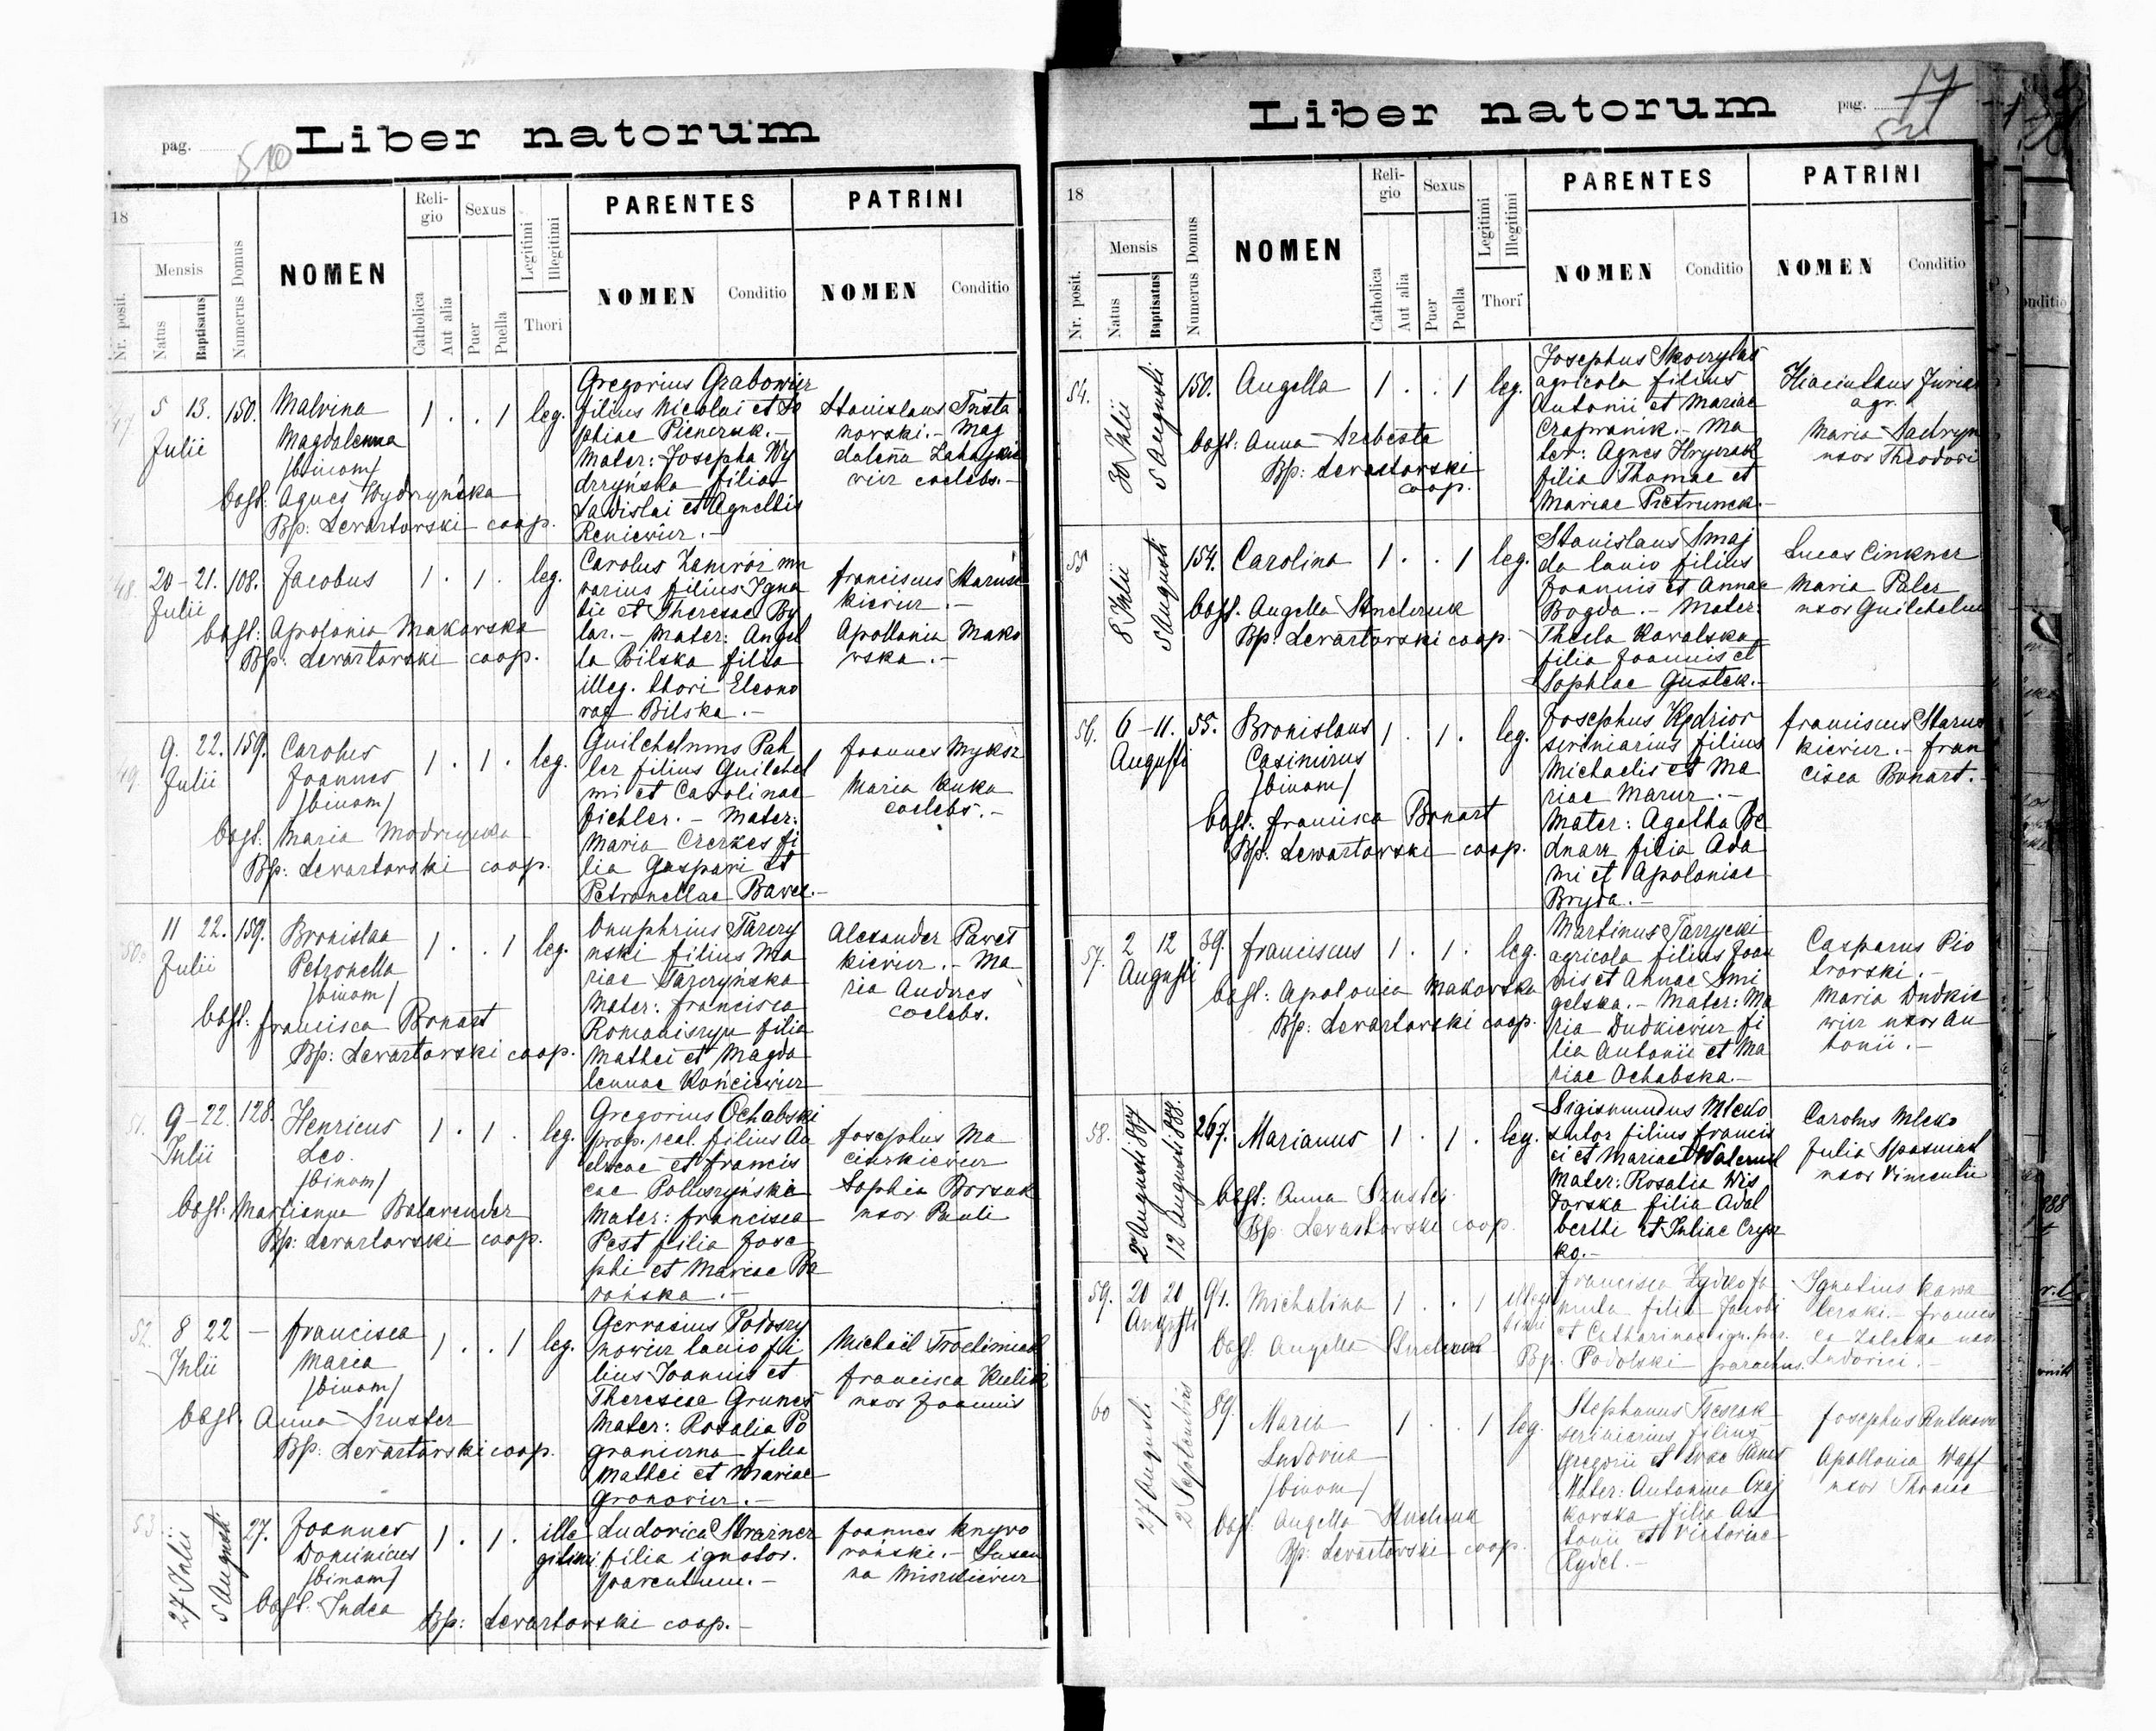 pag. 510
Liber natorum
18
Nr. posit.
Mensis
Natus
Baptisatus
Numerus Domus
NOMEN
Reli-
gio
Catholica
Aut alia
Sexus
Puer
Puella
Legitimi
Illegitimi
Thori
PARENTES
NOMEN
Conditio
PATRINI
NOMEN
Conditio
47.
5 13.
Julii
150.
Malvina
Magdalenna
/binom/
1 . . 1 leg.
obst. Agnes Wydrzyńska
Bp: Levartovski coop.
Gregorius Grabowicz
filius Nicolai et So
phiae
Mater: Josepha Wy
drzyńska filia
Ladislai et Agnettis
Reniewicz.-
Stanislaus Trista
novski.- Mag
dalena
wicz coelebs.-
48.
20-21.
Julii
108.
Jacobus
1 . 1 . leg.
obst: Apolonia Makowska
Bp: Levartovski coop.
Carolus mu
rarius filius Igna
tii et Theresae By
lar.- Mater: Angel
la Bilska filia
illeg. thori Eleono
rae Bilska.-
Franciscus Starusz
kiewicz.-
Apollonia Mako
wska.-
49
9. 22.
Julii
159.
Carolus
Joannes
/binom/
1 . 1 . leg.
obst. Maria
Bp: Levartovski coop.
Guilhelmus Pah
ler filius Guilhel
mi et Carolinae
Fichler.- Mater:
Maria Czerkes fi
lia Gaspari et
Petronellae Bawer.-
Joannes
Maria Kuka
coelebs.-
50.
11 22.
Julii
159.
Bronislaa
Petronella
/binom/
1 . . 1 leg.
obst: Francisca Bonart
Bp: Levartovski coop.
Onuphrius Tarczy
nski filius Ma
riae Tarczyńska
Mater: Francisca
filia
Mathei et Magda
lennae Kończewicz
Alexander Paweł
kiewicz.- Ma
ria Andres
coelebs.
51.
9-22.
Julii
128.
Henricus
Leo.
/binom/
1 . 1 . leg.
obst: Martianna Balawender
Bp: Levartovski coop.
Gregorius Ochabski
prop. real. filius An
dreae et Francis
cae
Mater: Francisca
Pest filia Jose
phi et Mariae Ba
rańska.-
Josephus Ma
ciurkiewicz
Sophia Borsuk
uxor Pauli
52.
8 22
Julii
-
Francisca
Maria
/binom/
1 . . 1 leg.
obst. Anna Szuster
Bp: Levartovski coop.
Gervasius
nowicz lanio fi
lius Joannis et
Theresiae Grunes
Mater: Rosalia Po
graniczna filia
Mathei et Mariae
Granowicz.-
Michaël
Francisca Kielik
uxor Joannis
53
27 Julii
5 Augusti
27.
Joannes
Dominicus
/binom/
1 . 1 . ille
gitimi
obst. Judea
Bp: Levartovski coop.-
Ludovica Strainer
filia ignotor.
parentum.-
Joannes
Susan
na
pag. 17
Liber natorum
18
Nr. posit.
Mensis
Natus
Baptisatus
Numerus Domus
NOMEN
Reli-
gio
Catholica
Aut alia
Sexus
Puer
Puella
Legitimi
Illegitimi
Thori
PARENTES
NOMEN
Conditio
PATRINI
NOMEN
Conditio
54.
30 Julii
5 Augusti.
150.
Angella
1 . . 1 leg.
obst: Anna Szebesta
Bp: Levartovski
coop.
Josephus
agricola filius
Antonii et Mariae
Czapranik.- Ma
ter: Agnes Hryczak
filia Thomae et
Mariae
agr.
Maria
uxor Theodori
55
8 Julii
5 Augusti
154.
Carolina
1 . . 1 leg.
obst. Angella Stucheruk
Bp: Levartovski coop.
Stanislaus Smaj
da lanio filius
Joannis et Annae
Bogda.- Mater:
Thecla Kovalska
filia Joannis et
Sophiae Gustek.-
Lucas Cinkner
Maria Paler
uxor Guilhelmi
56.
6-11.
Augusti
55.
Bronislaus
Casimirus
/binom/
1 . 1 . leg.
obst: Francisca Bonart
Bp: Lewartovski coop.
Josephus Kędzior
scriniarius filius
Michaelis et Ma
riae Mazur.-
Mater: Agatha Be
dnarz filia Ada
mi et Apoloniae
Bryda.-
Franciscus Starus
kiewicz.- Fran
cisca Bonart.-
57.
2 12
Augusti
39.
Franciscus
1 . 1 . leg.
obst: Apolonia Makovska
Bp: Levartovski coop.
Martinus Tarzycki
agricola filius Joan
nis et Annae Smi
gelska.- Mater: Ma
ria Dudkiewicz fi
lia Antonii et Ma
riae Ochabska.-
Casparus Pio
trovski.-
Maria Dudkie
wicz uxor An
tonii.-
58.
2 Augusti 887
12 Augusti 888.
267.
Marianus
1 . 1 . leg.
obst: Anna Szuster
Bp: Levartovski coop.
Sigismundus Mleko
sutor filius Francis
ci et Mariae
Mater: Rosalia Wis
dorska filia Adal
berthi et Juliae Czyz
ko.-
Carolus Mleko
Julia
uxor Vincentii
59.
20 20
Augusti
91.
Michalina
1 . . 1 illegi
timi
obst. Angella Stucheruk
Bp. Podolski parochus.
Francisca fa
mula filia Jacobi
et Catharinae
Ignatius Kawa
lerski.- Francis
ca Zaleska uxo.
Ludovici.-
60
27 Augusti
2 Septembris
89.
Maria
Ludovica
/binom/
1 . . 1 leg.
obst. Angella Stucheruk
Bp: Levartovski coop.
Stephanus
scriniarius filius
Gregorii et Evae
Mater: Antonina Czaj
kovska filia An
tonii et Victoriae
Rydel.-
Josephus Rutkows
Apollonia
uxor Thomae